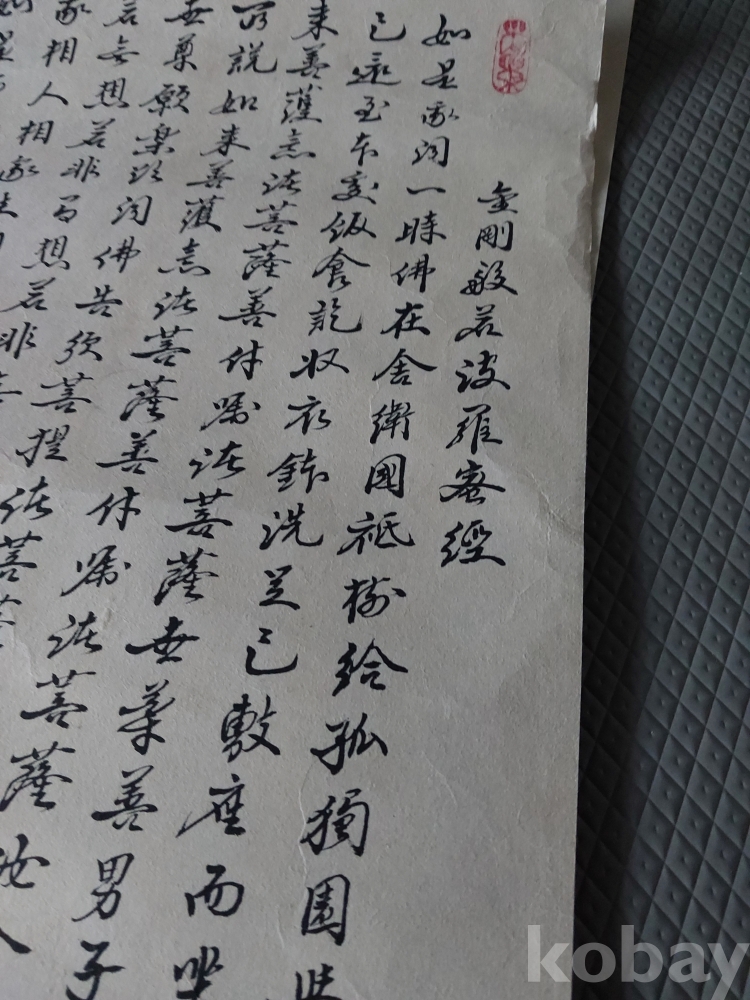 金剛般若波羅蜜經
如是我闻一時佛在舍衛國祇樹給孤獨園
已還至本處飯食訖收衣鉢洗足已敷座而坐
来善護念諸菩薩善付囑諸菩薩世尊善男子
所說如来善護念諸菩薩善付囑諸菩薩汝
世尊願樂欲闻佛告須菩提諸菩
若無想若非有想若非
我相人相眾生
kobay